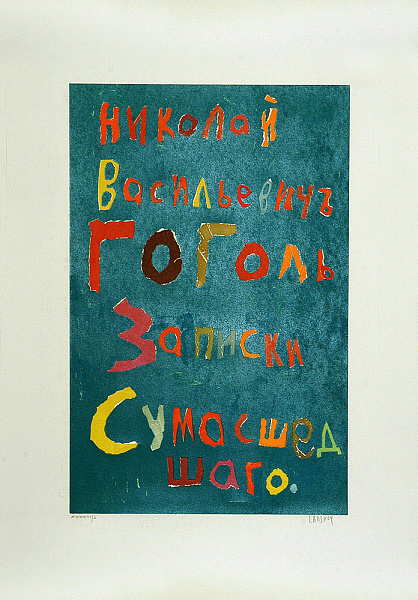 Николай
Васильевичъ
Гоголь
Записки
Сумасшед
шаго.
LANSKOY